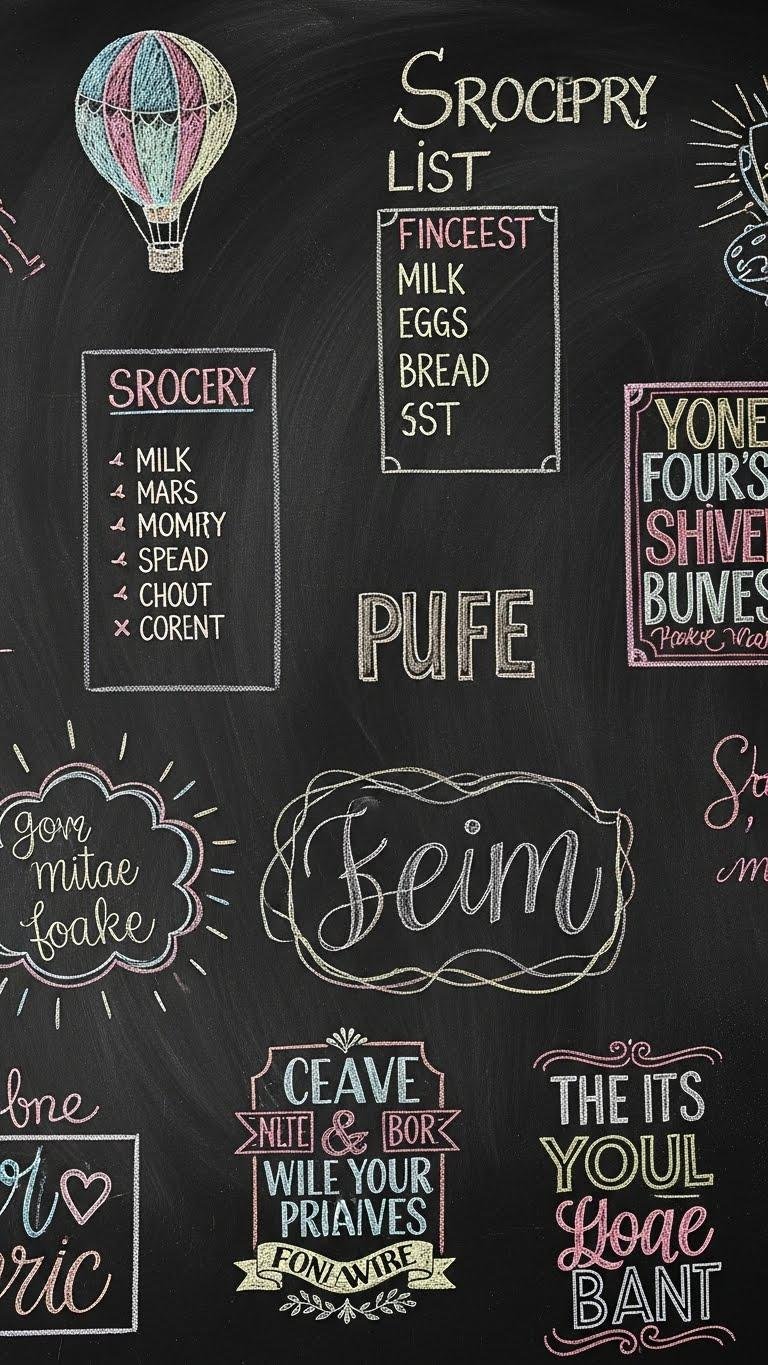 SROCEPRY
LIST
FINCEEST
MILK
EGGS
BREAD
SST
SROCERY
MILK
MARS
SPEAD
CHOUT
CORENT
YONE
FOUR'S
SHIVE
BUNVES
PUFE
mitae
foake
Feim
bne
CEAVE
NLTE & BOR
WILE YOUR
PRIAIVES
FONI WIRE
THE ITS
YOUL
BANT